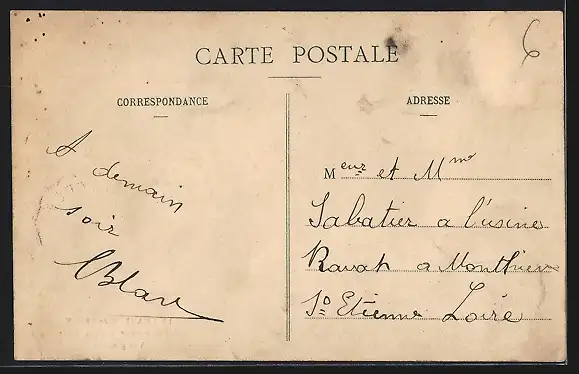 6
CARTE POSTALE
CORRESPONDANCE
A demain
soir
Blanc
ADRESSE
Meur et Mme
Sabatier a l'usine
Ravat a Monthieu
St Etienne Loire